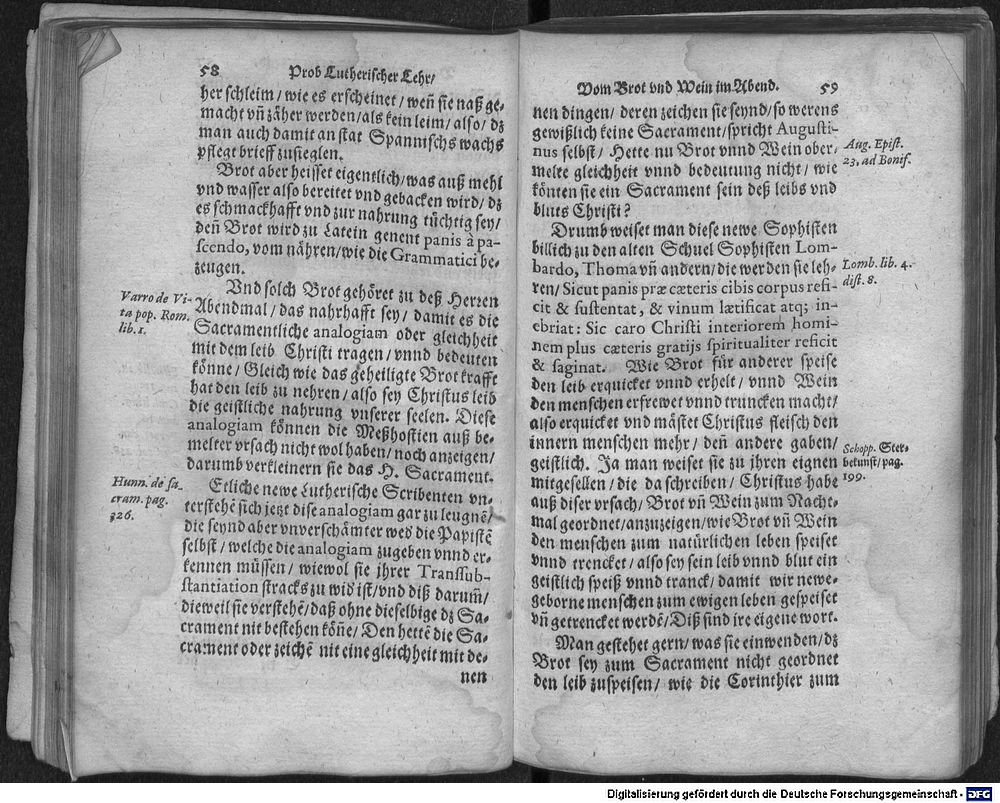 58 Prob Lutherischer Lehr/
her schleim/ wie es erscheinet/ weñ sie naß ge-
macht vñ zäher werden/ als kein leim/ also/ dz
man auch damit an stat Spannischs wachs
pflegt brieff zusieglen.
Brot aber heisset eigentlich/ was auß mehl
vnd wasser also bereitet vnd gebacken wird/ dz
es schmackhafft vnd zur nahrung tüchtig sey/
deñ Brot wird zu Latein genent panis à pa-
scendo, vom nähren/ wie die Grammatici be-
zeugen.
Vnd solch Brot gehöret zu deß Herzen
Abendmal/ das nahrhafft sey/ damit es die
Sacramentliche analogiam oder gleichheit
mit dem leib Christi tragen/ vnnd bedeuten
könne/ Gleich wie das geheiligte Brot krafft
hat den leib zu nehren/ also sey Christus leib
die geistliche nahrung vnserer seelen. Diese
analogiam können die Meßhostien auß be-
melter vrsach nicht wol haben/ noch anzeigen/
darumb verkleinern sie das H. Sacrament.
Etliche newe Lutherische Scribenten vn-
terstehẽ sich jezt dise analogiam gar zu leugnẽ/
die seynd aber vnverschämter wed' die Papistẽ
selbst/ welche die analogiam zugeben vnnd er-
kennen müssen/ wiewol sie jhrer Transsub-
stantiation stracks zu wid' ist/ vnd diß darum̃/
dieweil sie verstehẽ/ daß ohne dieselbige dz Sa-
crament nit bestehen köñe/ Den hettẽ die Sa-
crament oder zeichẽ nit eine gleichheit mit de-
nen
Varro de Vi-
ta pop. Rom.
lib. 1.
Hunn. de sa-
cram. pag.
326.
Vom Brot vnd Wein im Abend. 59
nen dingen/ deren zeichen sie seynd/ so werens
gewißlich keine Sacrament/ spricht Augusti-
nus selbst/ Hette nu Brot vnnd Wein ober-
melte gleichheit vnnd bedeutung nicht/ wie
könten sie ein Sacrament sein deß leibs vnd
bluts Christi?
Drumb weiset man diese newe Sophisten
billich zu den alten Schuel Sophisten Lom-
bardo, Thoma vñ andern/ die werden sie leh-
ren/ Sicut panis præ cæteris cibis corpus refi-
cit & sustentat, & vinum lætificat atq; in-
ebriat: Sic caro Christi interiorem homi-
nem plus cæteris gratijs spiritualiter reficit
& saginat. Wie Brot für anderer speise
den leib erquicket vnnd erhelt/ vnnd Wein
den menschen erfrewet vnnd truncken macht/
also erquicket vnd mästet Christus fleisch den
innern menschen mehr/ deñ andere gaben/
geistlich. Ja man weiset sie zu jhren eignen
mitgesellen/ die da schreiben/ Christus habe
auß diser vrsach/ Brot vñ Wein zum Nacht-
mal geordnet/ anzuzeigen/ wie Brot vñ Wein
den menschen zum natürlichen leben speiset
vnnd trencket/ also sey sein leib vnnd blut ein
geistlich speiß vnnd tranck/ damit wir newe-
geborne menschen zum ewigen leben gespeiset
vñ getrencket werdẽ/ Diß sind ire eigene wort.
Man gestehet gern/ was sie einwenden/ dz
Brot sey zum Sacrament nicht geordnet
den leib zuspeisen/ wie die Corinthier zum
Aug. Epist.
23, ad Bonif.
Lomb. lib. 4.
dist. 8.
Schopp. Ster-
bekunst/ pag.
199.
Digitalisierung gefördert durch die Deutsche Forschungsgemeinschaft - DFG